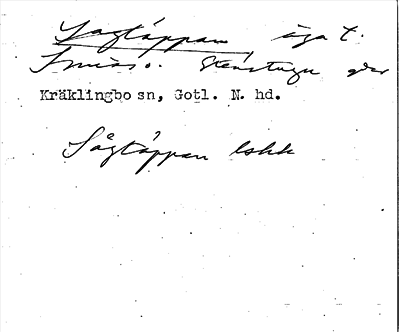 Sågtäppan, äga t.
Smiss o. Stenstugu gdar
Kräklingbo sn, Gotl. N. hd.
Sågtäppan